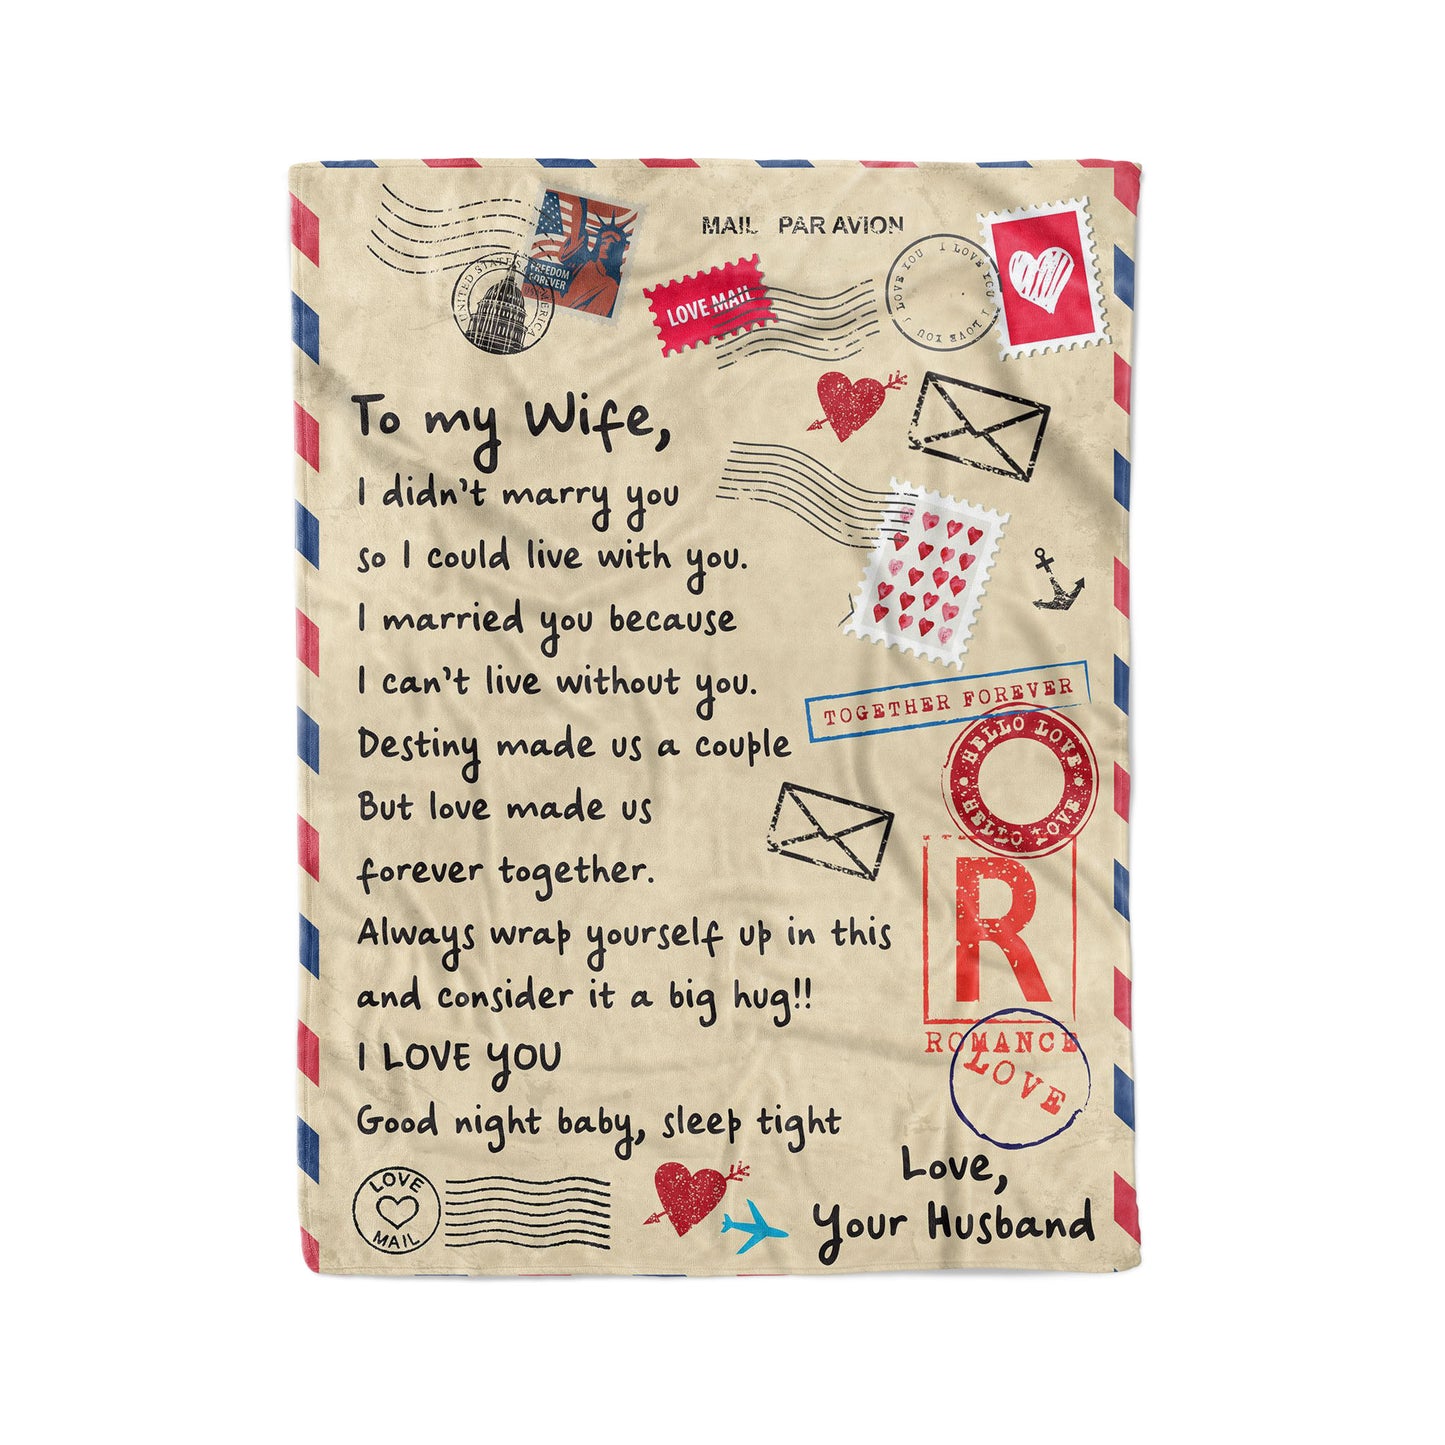 MAIL PAR AVION
FREEDOM
FOREVER
UNITED STATES AMERICA
LOVE MAIL
I LOVE YOU I LOVE YOU I LOVE YOU
To my Wife,
I didn't marry you
so I could live with you.
I married you because
I can't live without you.
TOGETHER FOREVER
Destiny made us a couple
HELLO LOVE
HELLO LOVE
But love made us
forever together.
R
Always wrap yourself up in this
and consider it a big hug!!
ROMANCE
I LOVE YOU
LOVE
Good night baby, sleep tight
Love,
Your Husband
LOVE
MAIL